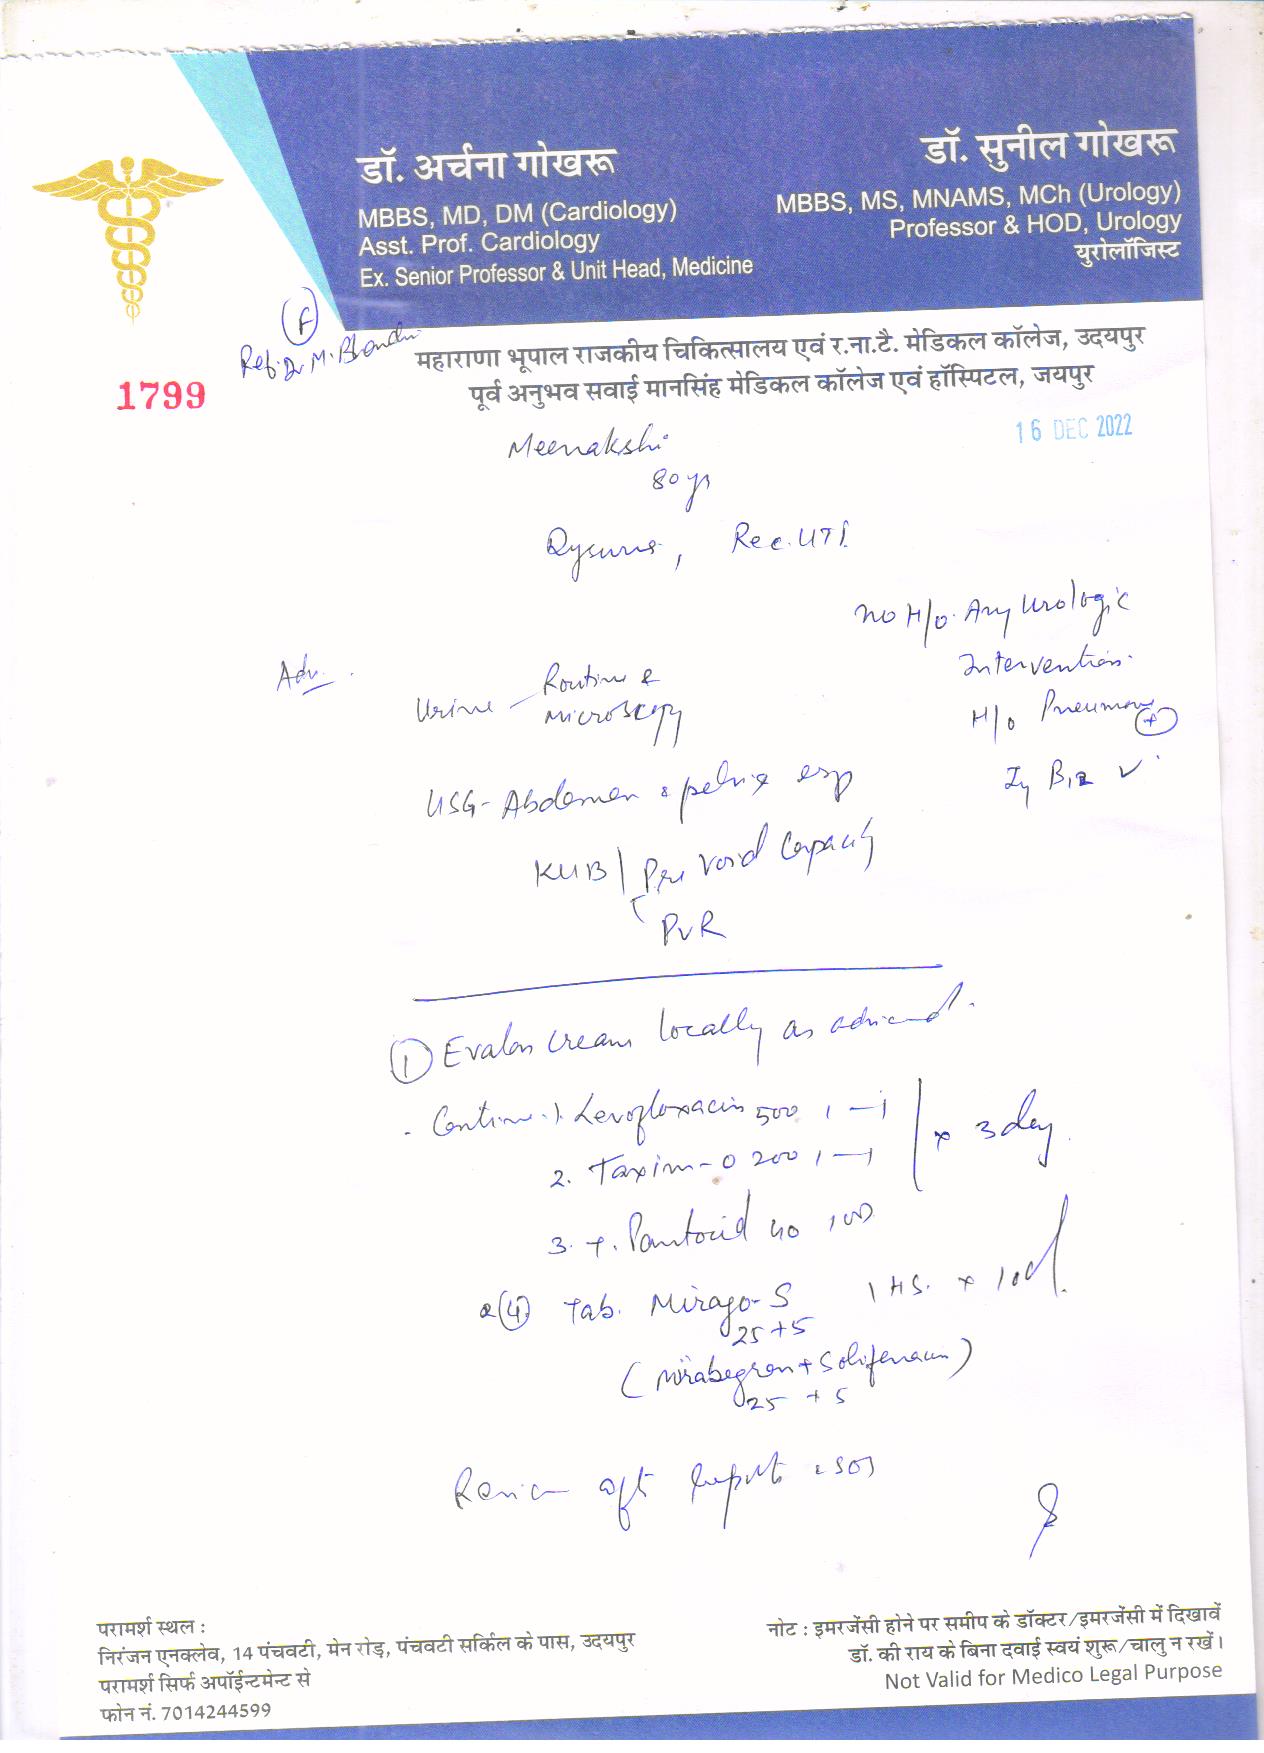 डॉ. अर्चना गोखरू
MBBS, MD, DM (Cardiology)
Asst. Prof. Cardiology
Ex. Senior Professor & Unit Head, Medicine
डॉ. सुनील गोखरू
MBBS, MS, MNAMS, MCh (Urology)
Professor & HOD, Urology
युरोलॉजिस्ट
F
Ref. Dr M. Bhandari
महाराणा भूपाल राजकीय चिकित्सालय एवं र.ना.टै. मेडिकल कॉलेज, उदयपुर
पूर्व अनुभव सवाई मानसिंह मेडिकल कॉलेज एवं हॉस्पिटल, जयपुर
1799
16 DEC 2022
Meenakshi
80 yr
Dysuria, Rec. UTI.
No H/o. Any Urologic
Intervention.
H/o Pneumonia +
Inj B12 ✓
Adv.
Urine - Routine &
Microscopy
USG - Abdomen & pelvis esp
KUB / Pre Void Capacity
PVR
1 Evalon cream locally as advised.
Continue 1. Levofloxacin 500 1 - 1
2. Taxim-O 200 1 - 1 x 3 day
3. T. Pantocid 40 1 OD
4 Tab. Mirago-S 1 HS. x 10d
25+5
(Mirabegron + Solifenacin)
25 + 5
Review aft reports & SOS
परामर्श स्थल :
निरंजन एनक्लेव, 14 पंचवटी, मेन रोड़, पंचवटी सर्किल के पास, उदयपुर
परामर्श सिर्फ अपॉईन्टमेन्ट से
फोन नं. 7014244599
नोट : इमरजेंसी होने पर समीप के डॉक्टर/इमरजेंसी में दिखावें
डॉ. की राय के बिना दवाई स्वयं शुरू/चालु न रखें।
Not Valid for Medico Legal Purpose